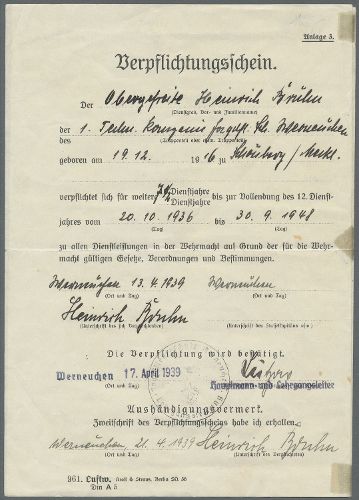 Anlage 3.
Verpflichtungsschein.
Der Obergefreite Heinrich Bruhn
(Dienstgrad, Vor- und Familienname)
der 1. Techn. Kompanie Werneuchen
des
(Truppenteil oder mar. Truppenteil)
geboren am 19.12. 1916 zu Schönberg / Meckl.
verpflichtet sich für weitere 7½ Dienstjahre
bis zur Vollendung des 12. Dienst-
jahres vom 20.10.1936 bis 30.9.1948
(Tag) (Tag)
zu allen Dienstleistungen in der Wehrmacht auf Grund der für die Wehr-
macht gültigen Gesetze, Verordnungen und Bestimmungen.
Werneuchen 13.4.1939 Werneuchen
(Ort und Tag) (Ort und Tag)
Heinrich Bruhn
(Unterschrift des sich Verpflichtenden) (Unterschrift des
Die Verpflichtung wird bestätigt.
Werneuchen 17. April 1939
(Ort und Tag) Hauptmann und Lehrgangsleiter
Aushändigungsvermerk.
Zweitschrift des Verpflichtungsscheins habe ich erhalten.
Werneuchen 21.4.1939 Heinrich Bruhn
(Ort und Tag) (Unterschrift des Verpflichteten)
961. Luftw. Berlin SO. 36
Din A 5